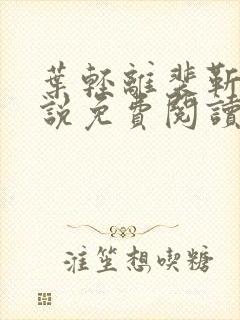 葉輕離裴靳
說免費閱讀
汪笙想喫糖